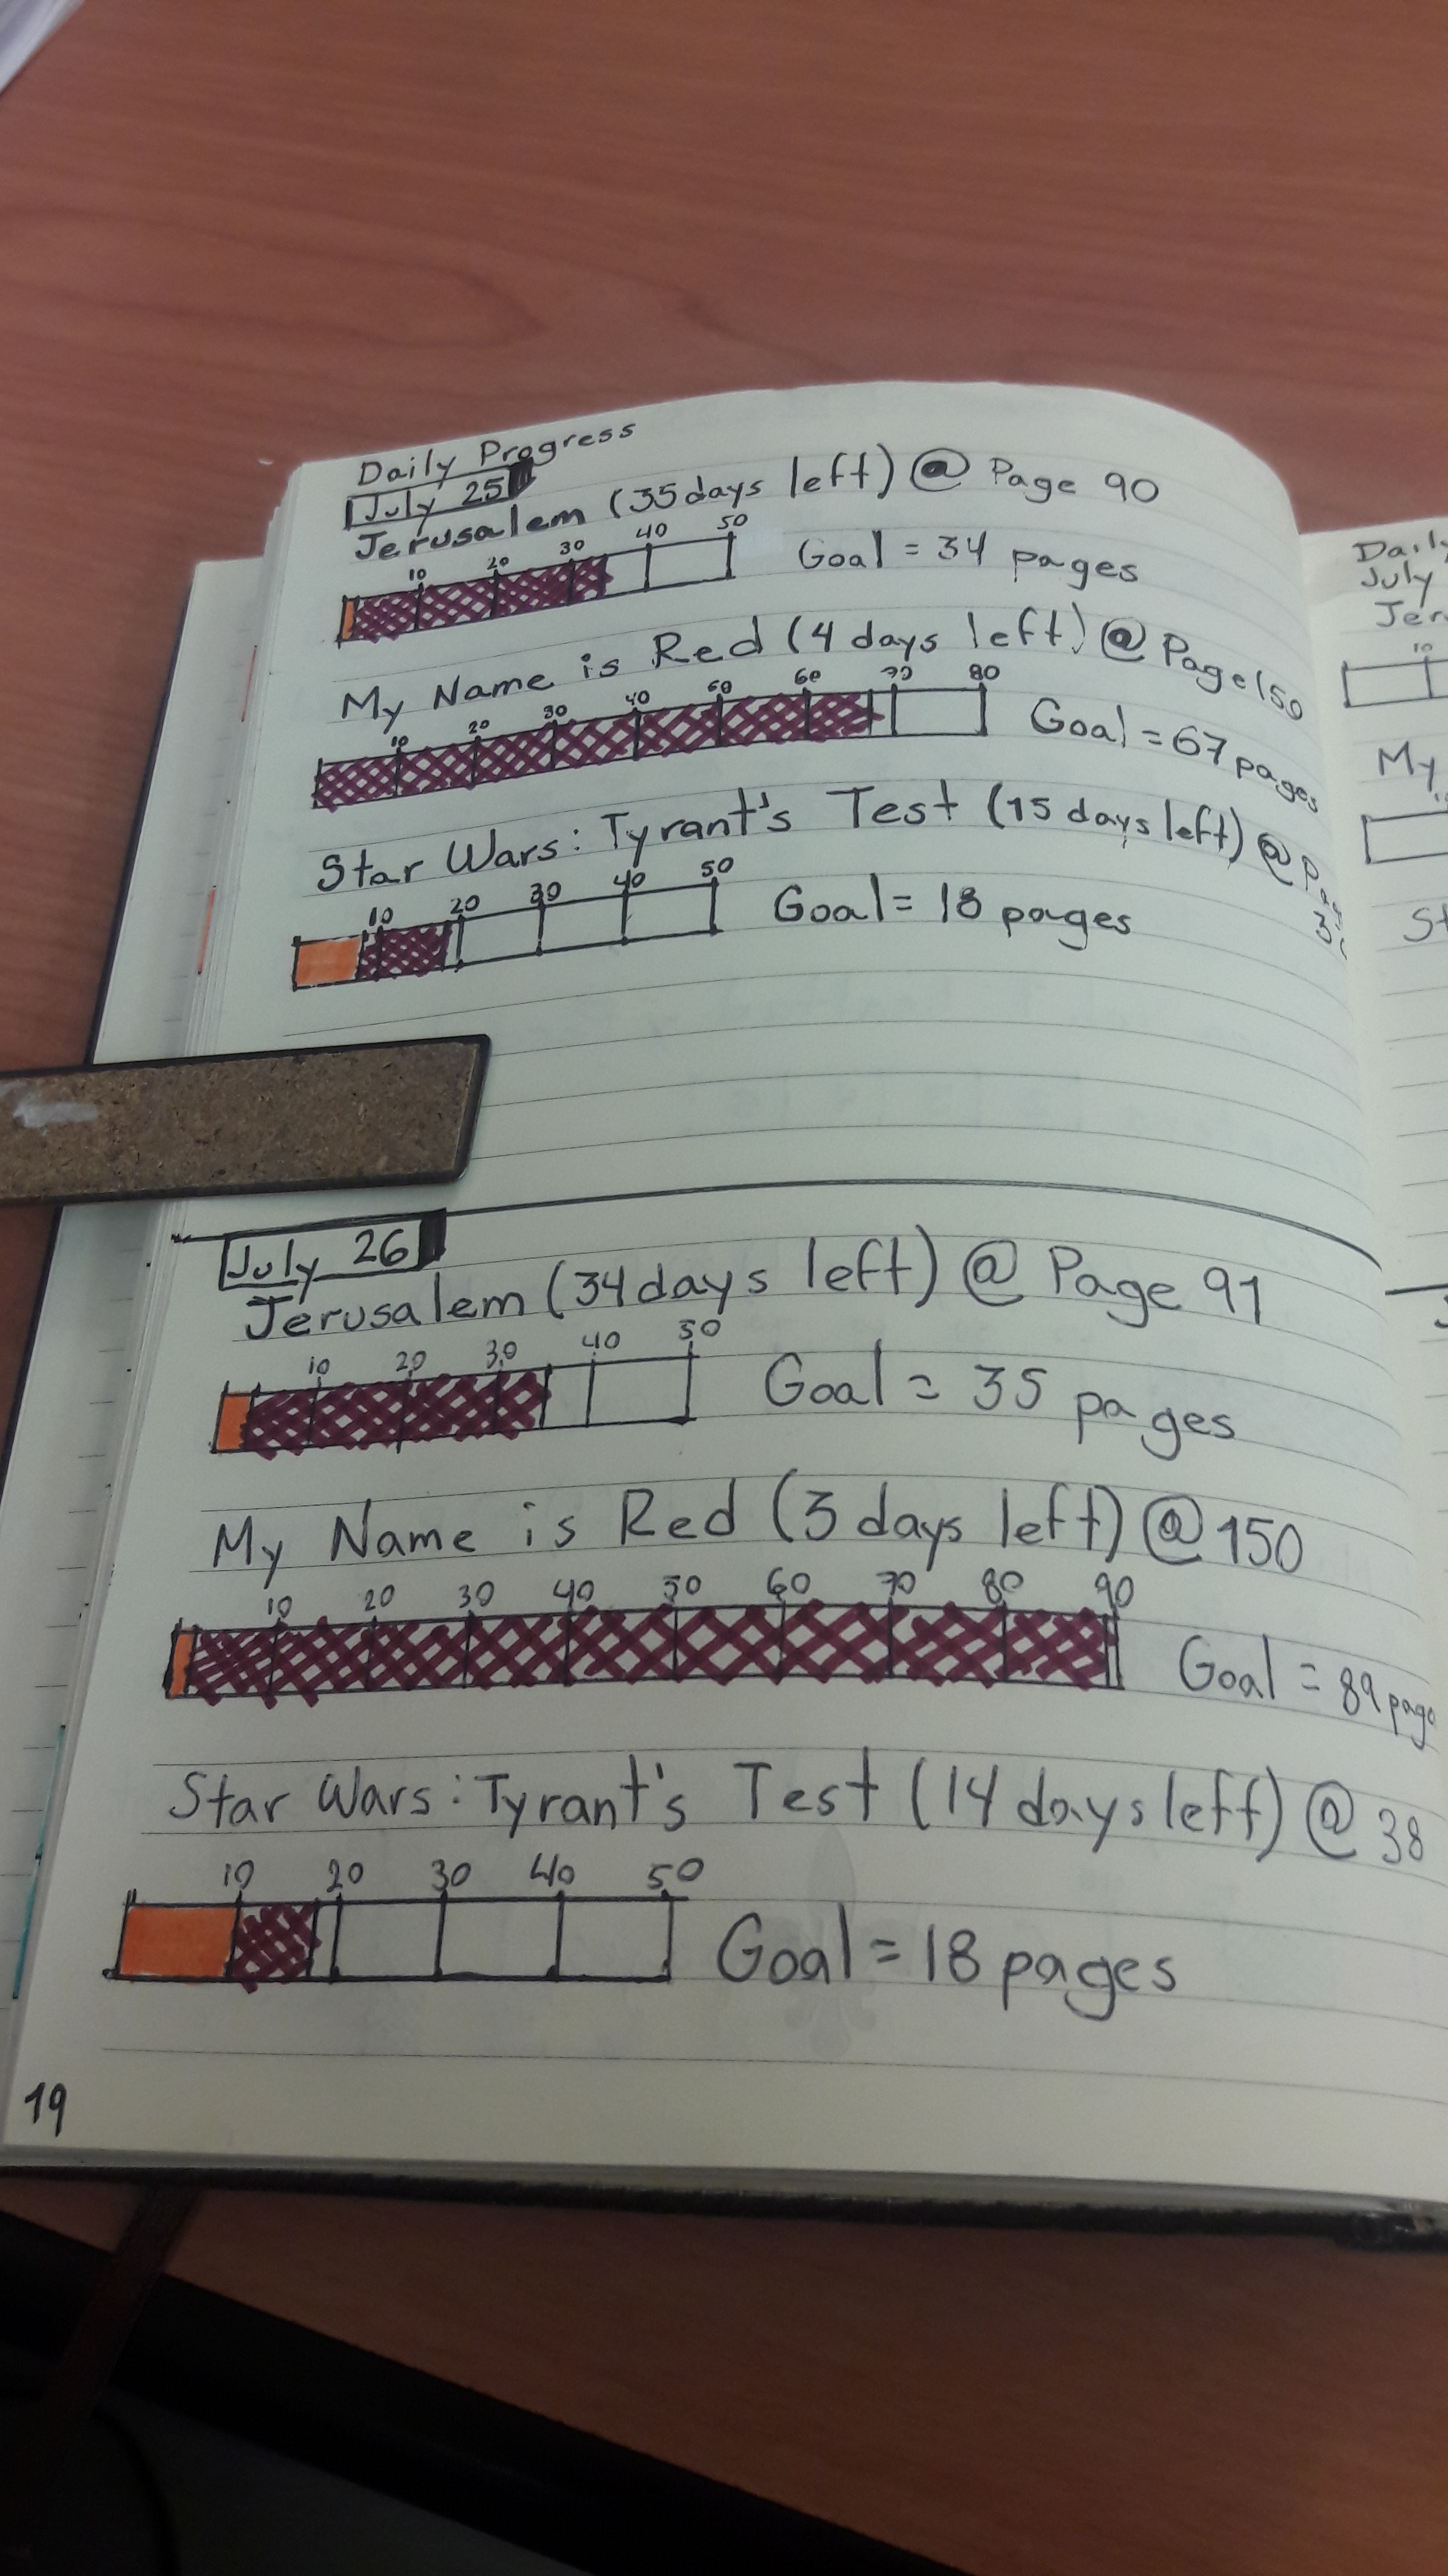 Daily Progress
July 25
Jerusalem (35 days left) @ Page 90
10 20 30 40 50
Goal = 34 pages
My Name is Red (4 days left) @ Page 150
10 20 30 40 50 60 70 80
Goal = 67 pages
Star Wars: Tyrant's Test (15 days left) @
10 20 30 40 50
Goal = 18 pages
July 26
Jerusalem (34 days left) @ Page 91
10 20 30 40 50
Goal = 35 pages
My Name is Red (3 days left) @ 150
10 20 30 40 50 60 70 80 90
Goal = 89 page
Star Wars: Tyrant's Test (14 days left) @ 38
10 20 30 40 50
Goal = 18 pages
19
July
10
My